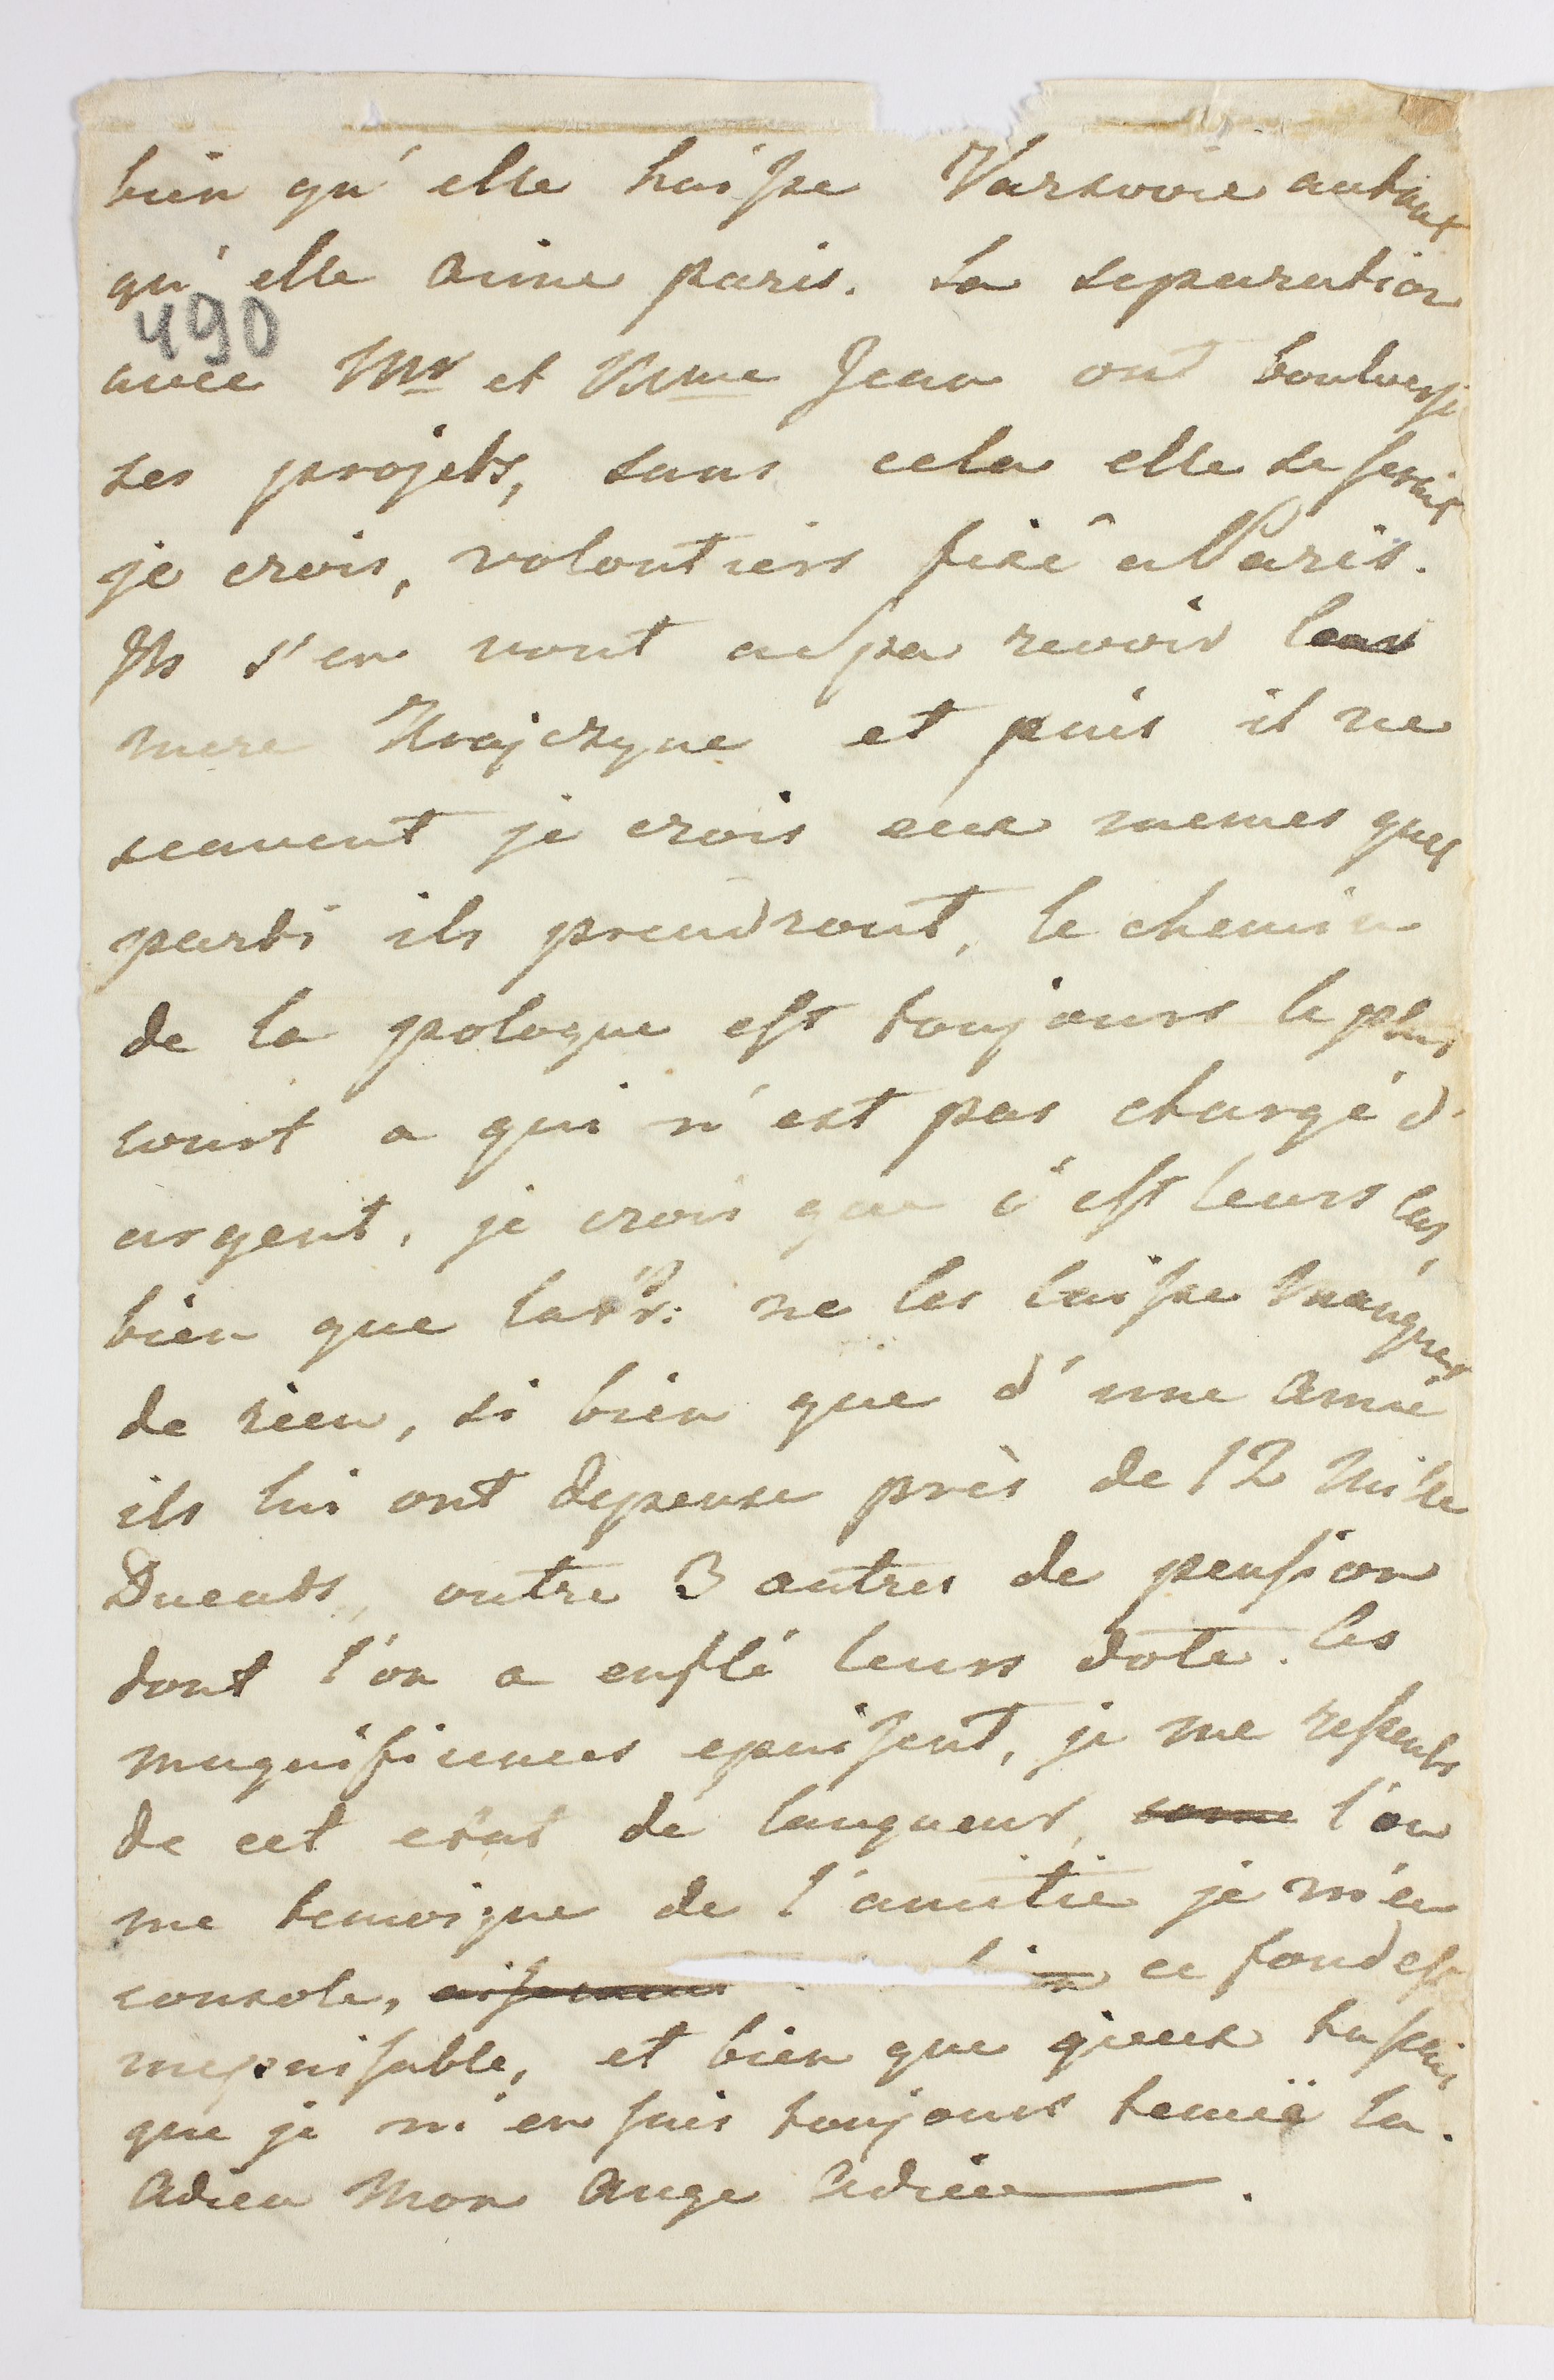 bien qu'elle haisse Varsovie autant
qu'elle aime paris. la separation
490
avec Mr et Mme Jean ont boulversé
ses projets, sans cela elle se serait
je crois, volontiers fixé a Paris.
Ils s'en vont a spa revoir leur
mere et puis il ne
scavent je crois eux memes quel
parti ils prendront, le chemin
de la pologne est toujours le plus
court a qui n'est pas chargé d'
argent, je crois que c'est leurs cas,
bien que la ne les laisse manquer
de rien, si bien que d'une année
ils lui ont depense près de 12 mille
Ducats, outre 3 autres de pension
dont l'on a enflé leurs dote. les
magnificences epuisent, je me ressents
de cet etat de langueur, come l'on
me temoigne de l'amitie je m'en
console, ce fond est
inepuisable, et bien que gueux tu scais
que je m'en suis toujours tenue la.
Adieu Mon Ange Adieu.